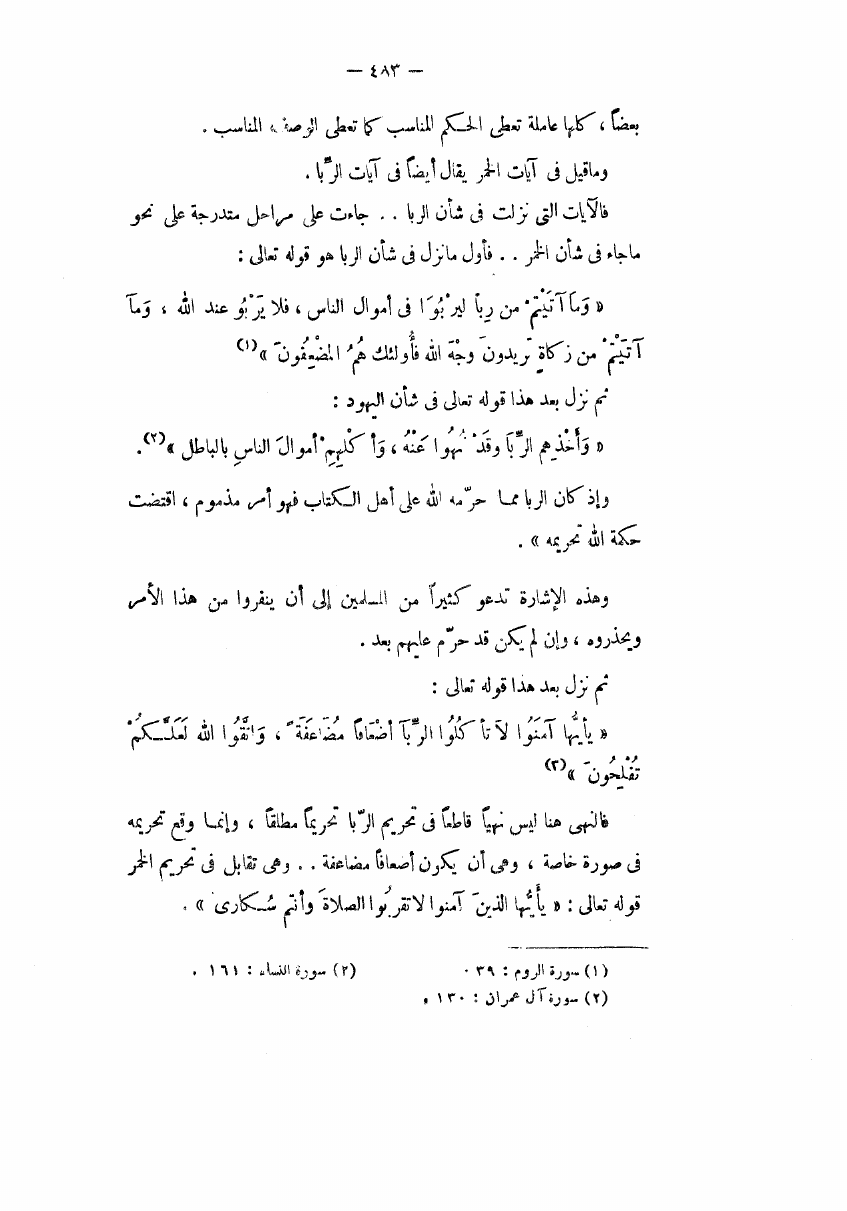 — ٤٨٣ —
بعضاً ، كلها عاملة تعطى الحكم المناسب كما تعطى الوصف المناسب .
وماقيل فى آيات الخمر يقال أيضاً فى آيات الرِّبا .
فالآيات التى نزلت فى شأن الربا . . جاءت على مراحل متدرجة على نحو
ماجاء فى شأن الخمر . . فأول مانزل فى شأن الربا هو قوله تعالى :
« وَمَا آتَيْتُمْ من رِباً لِيَرْبُوَا فى أموال الناس ، فلا يَرْبُو عند الله ، وَمَآ
آتَيْتُمْ من زكاةٍ تريدونَ وجْهَ الله فأُولئك هُمُ المُضْعِفُونَ »(١)
ثم نزل بعد هذا قوله تعالى فى شأن اليهود :
« وَأَخْذِهم الرِّبَا وقَدْ نُهُوا عَنْهُ ، وَأكْلِهِمْ أموالَ الناسِ بالباطل »(٢).
وإذ كان الربا مما حرّمه الله على أهل الكتاب فهو أمر مذموم ، اقتضت
حكمة الله تحريمه » .
وهذه الإشارة تدعو كثيراً من المسلمين إلى أن ينفروا من هذا الأمر
ويحذروه ، وإن لم يكن قد حرّم عليهم بعد .
ثم نزل بعد هذا قوله تعالى :
« يأيُّها آمَنُوا لاَ تأكُلُوا الرِّبَآ أضْعَافاً مُضَاعَفَةً ، وَاتَّقُوا الله لَعَلَّكُمْ
تُفْلِحُونَ »(٣)
فالنهى هنا ليس نهياً قاطعاً فى تحريم الرّبا تحريماً مطلقاً ، وإنما وقع تحريمه
فى صورة خاصة ، وهى أن يكون أضعافاً مضاعفة . . وهى تقابل فى تحريم الخمر
قوله تعالى : « يأَيُّها الذينَ آمنوا لاتقرَبُوا الصلاةَ وأنتم سُكارى » .
(١) سورة الروم : ٣٩ . (٢) سورة النساء : ١٦١ .
(٢) سورة آل عمران : ١٣٠ .